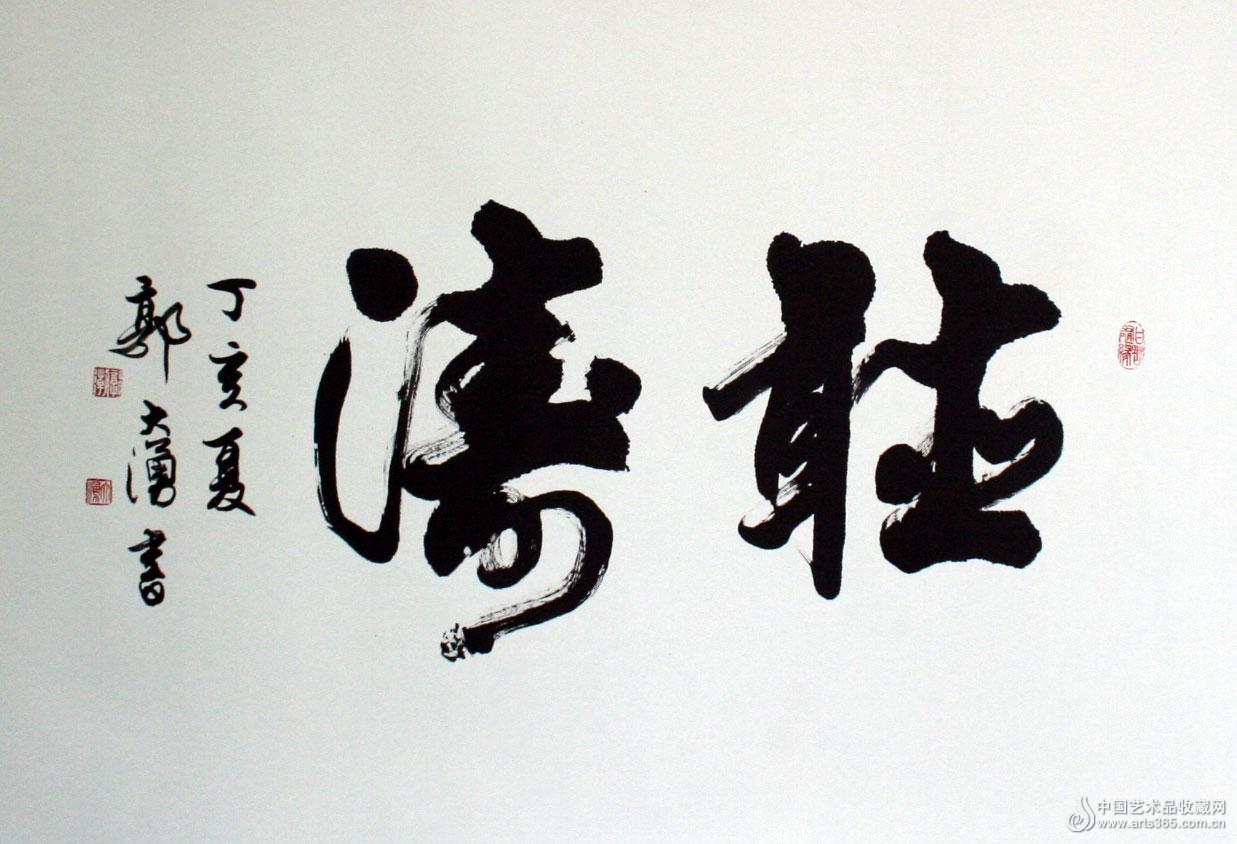 聽濤
丁亥夏
郭大勇書
中国艺术品收藏网
www.arts365.com.cn